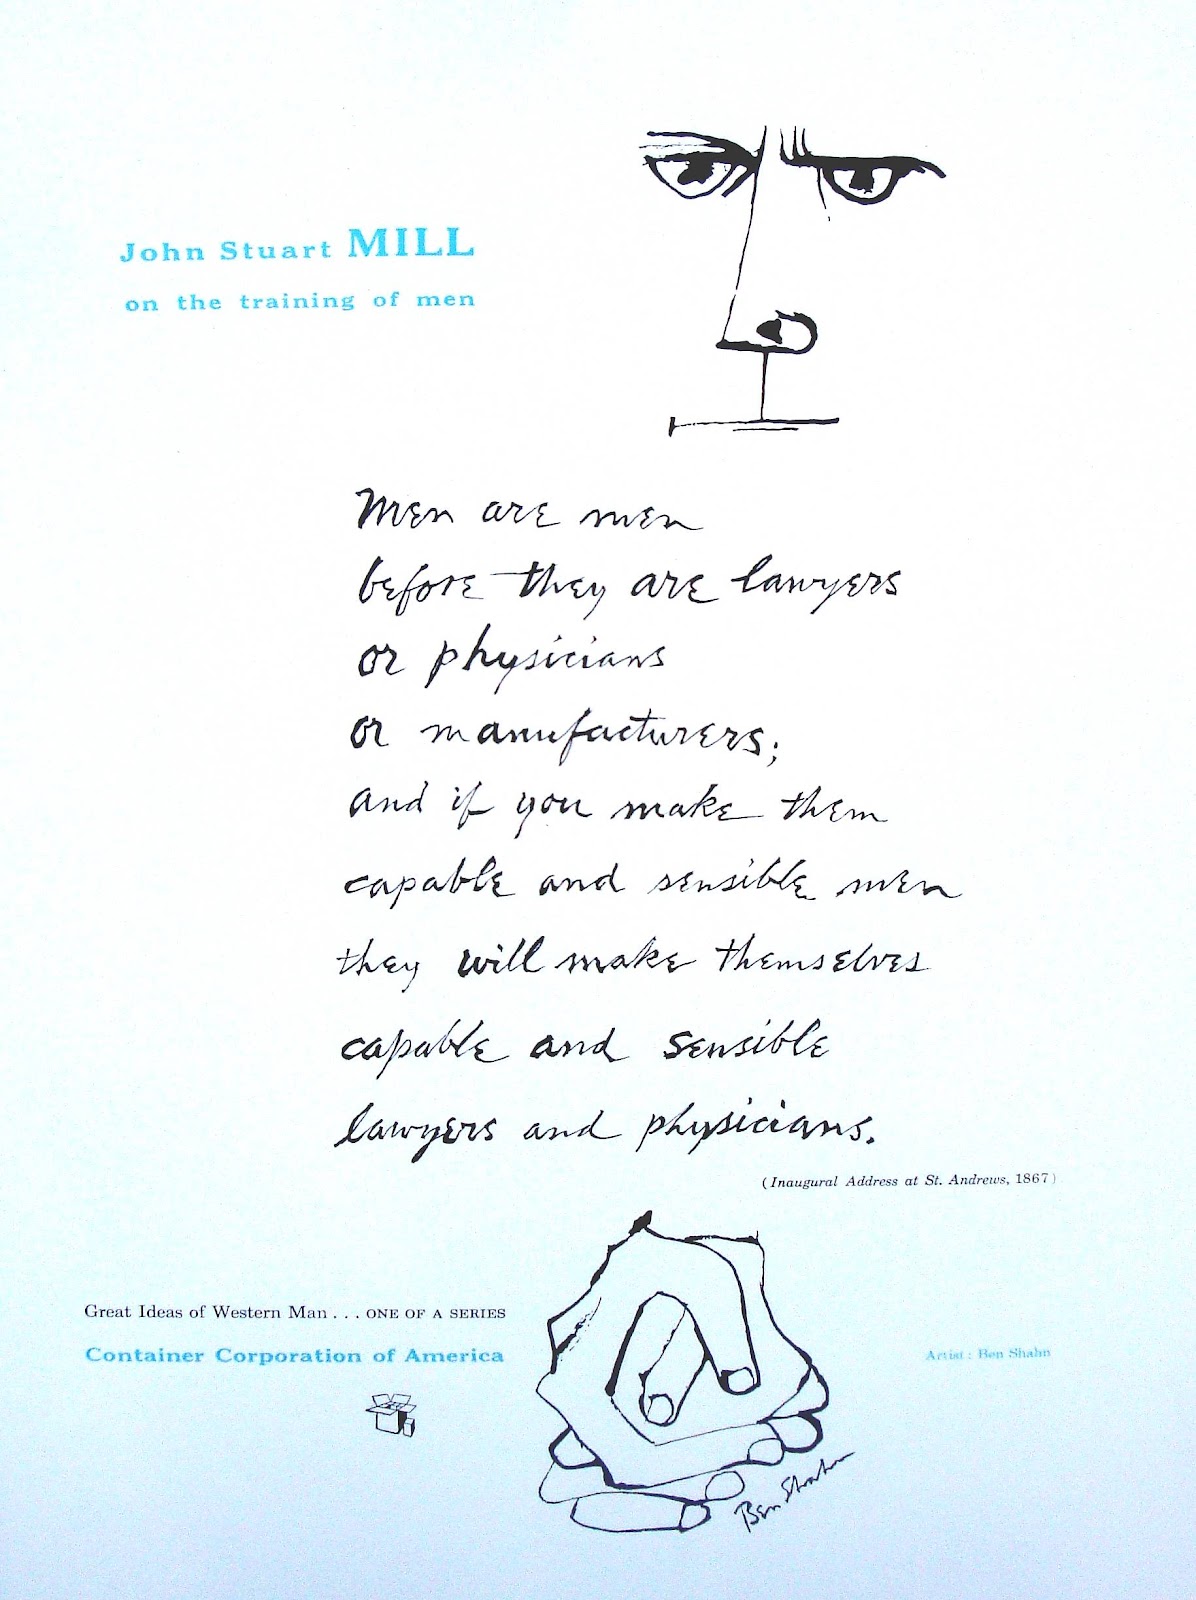 John Stuart MILL
on the training of men
Men are men
before they are lawyers
or physicians
or manufacturers;
and if you make them
capable and sensible men
they will make themselves
capable and sensible
lawyers and physicians.
(Inaugural Address at St. Andrews, 1867)
Great Ideas of Western Man . . . ONE OF A SERIES
Container Corporation of America
Artist: Ben Shahn
Ben Shahn